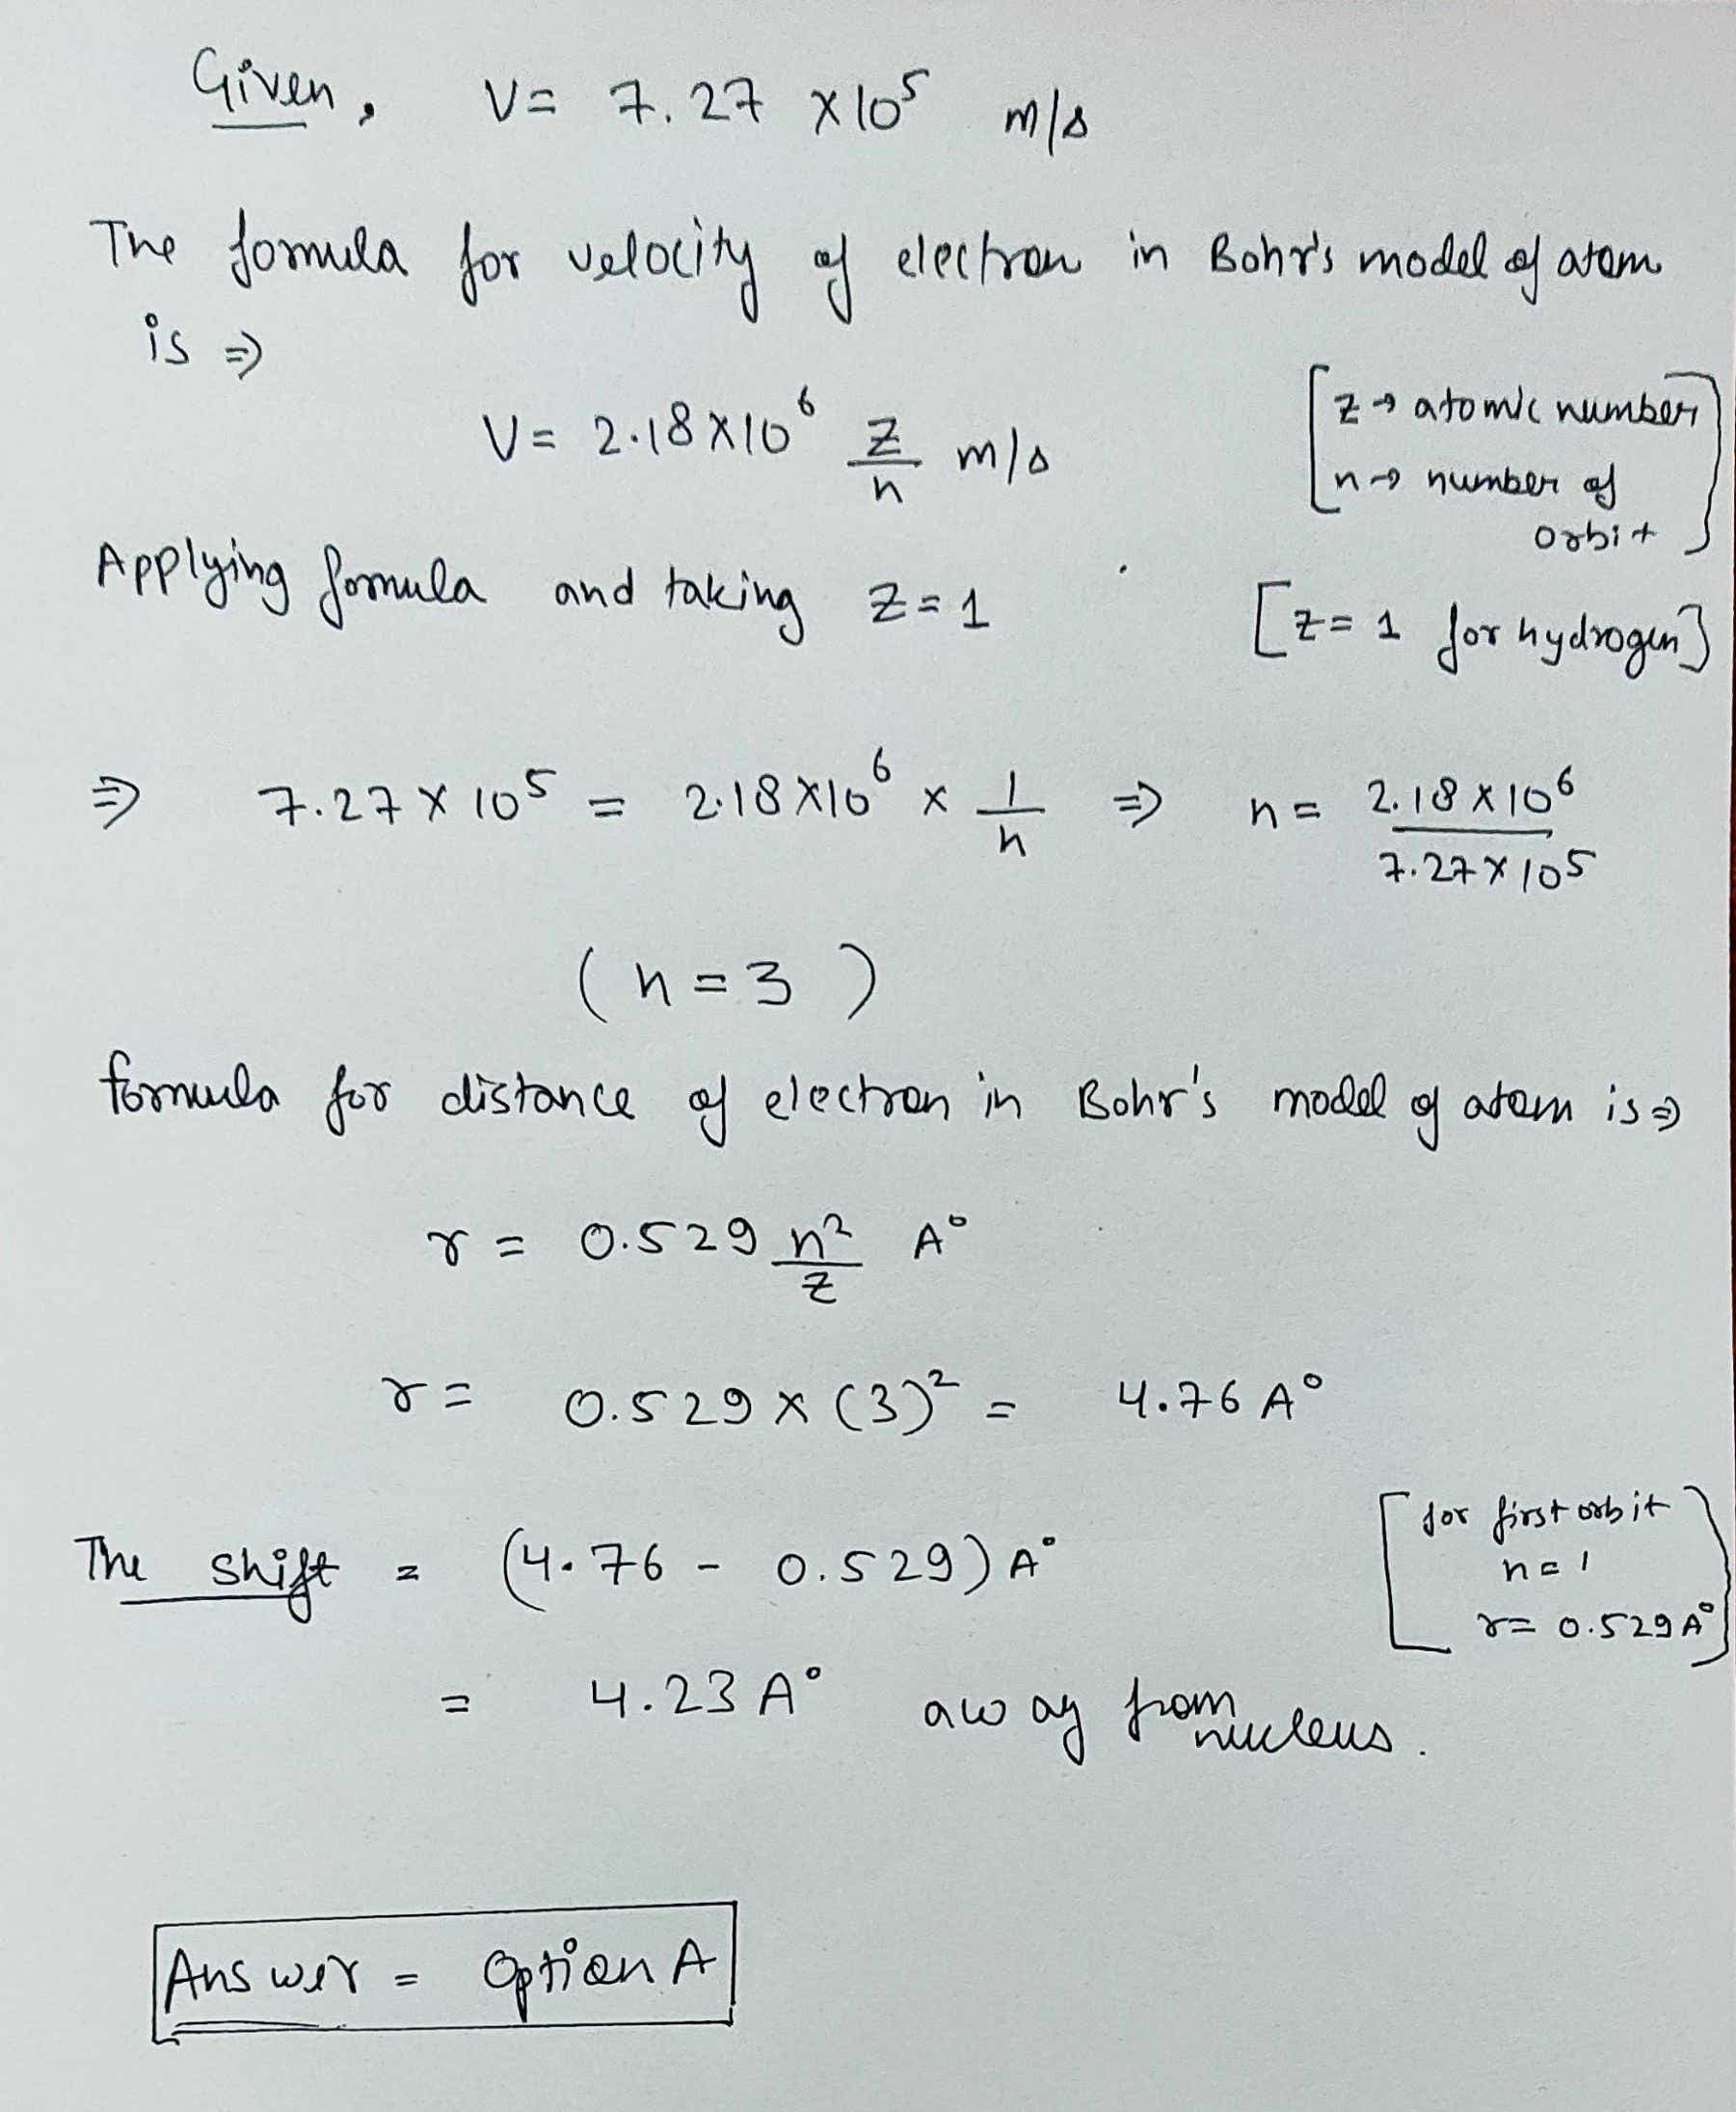 Given, V= 7.27 ×10⁵ m/s
The formula for velocity of electron in Bohr's model of atom
is ⇒
V= 2.18×10⁶ z/n m/s
[z→ atomic number
n→ number of
orbit]
Applying formula and taking z=1 [z=1 for hydrogen]
⇒ 7.27×10⁵ = 2.18×10⁶ × 1/n ⇒ n= 2.18×10⁶/7.27×10⁵
(n=3)
formula for distance of electron in Bohr's model of atom is⇒
r= 0.529 n²/z A°
r= 0.529×(3)² = 4.76 A°
The shift = (4.76 - 0.529) A°
[for first orbit
n=1
r= 0.529 A°]
= 4.23 A° away from nucleus.
Answer = Option A